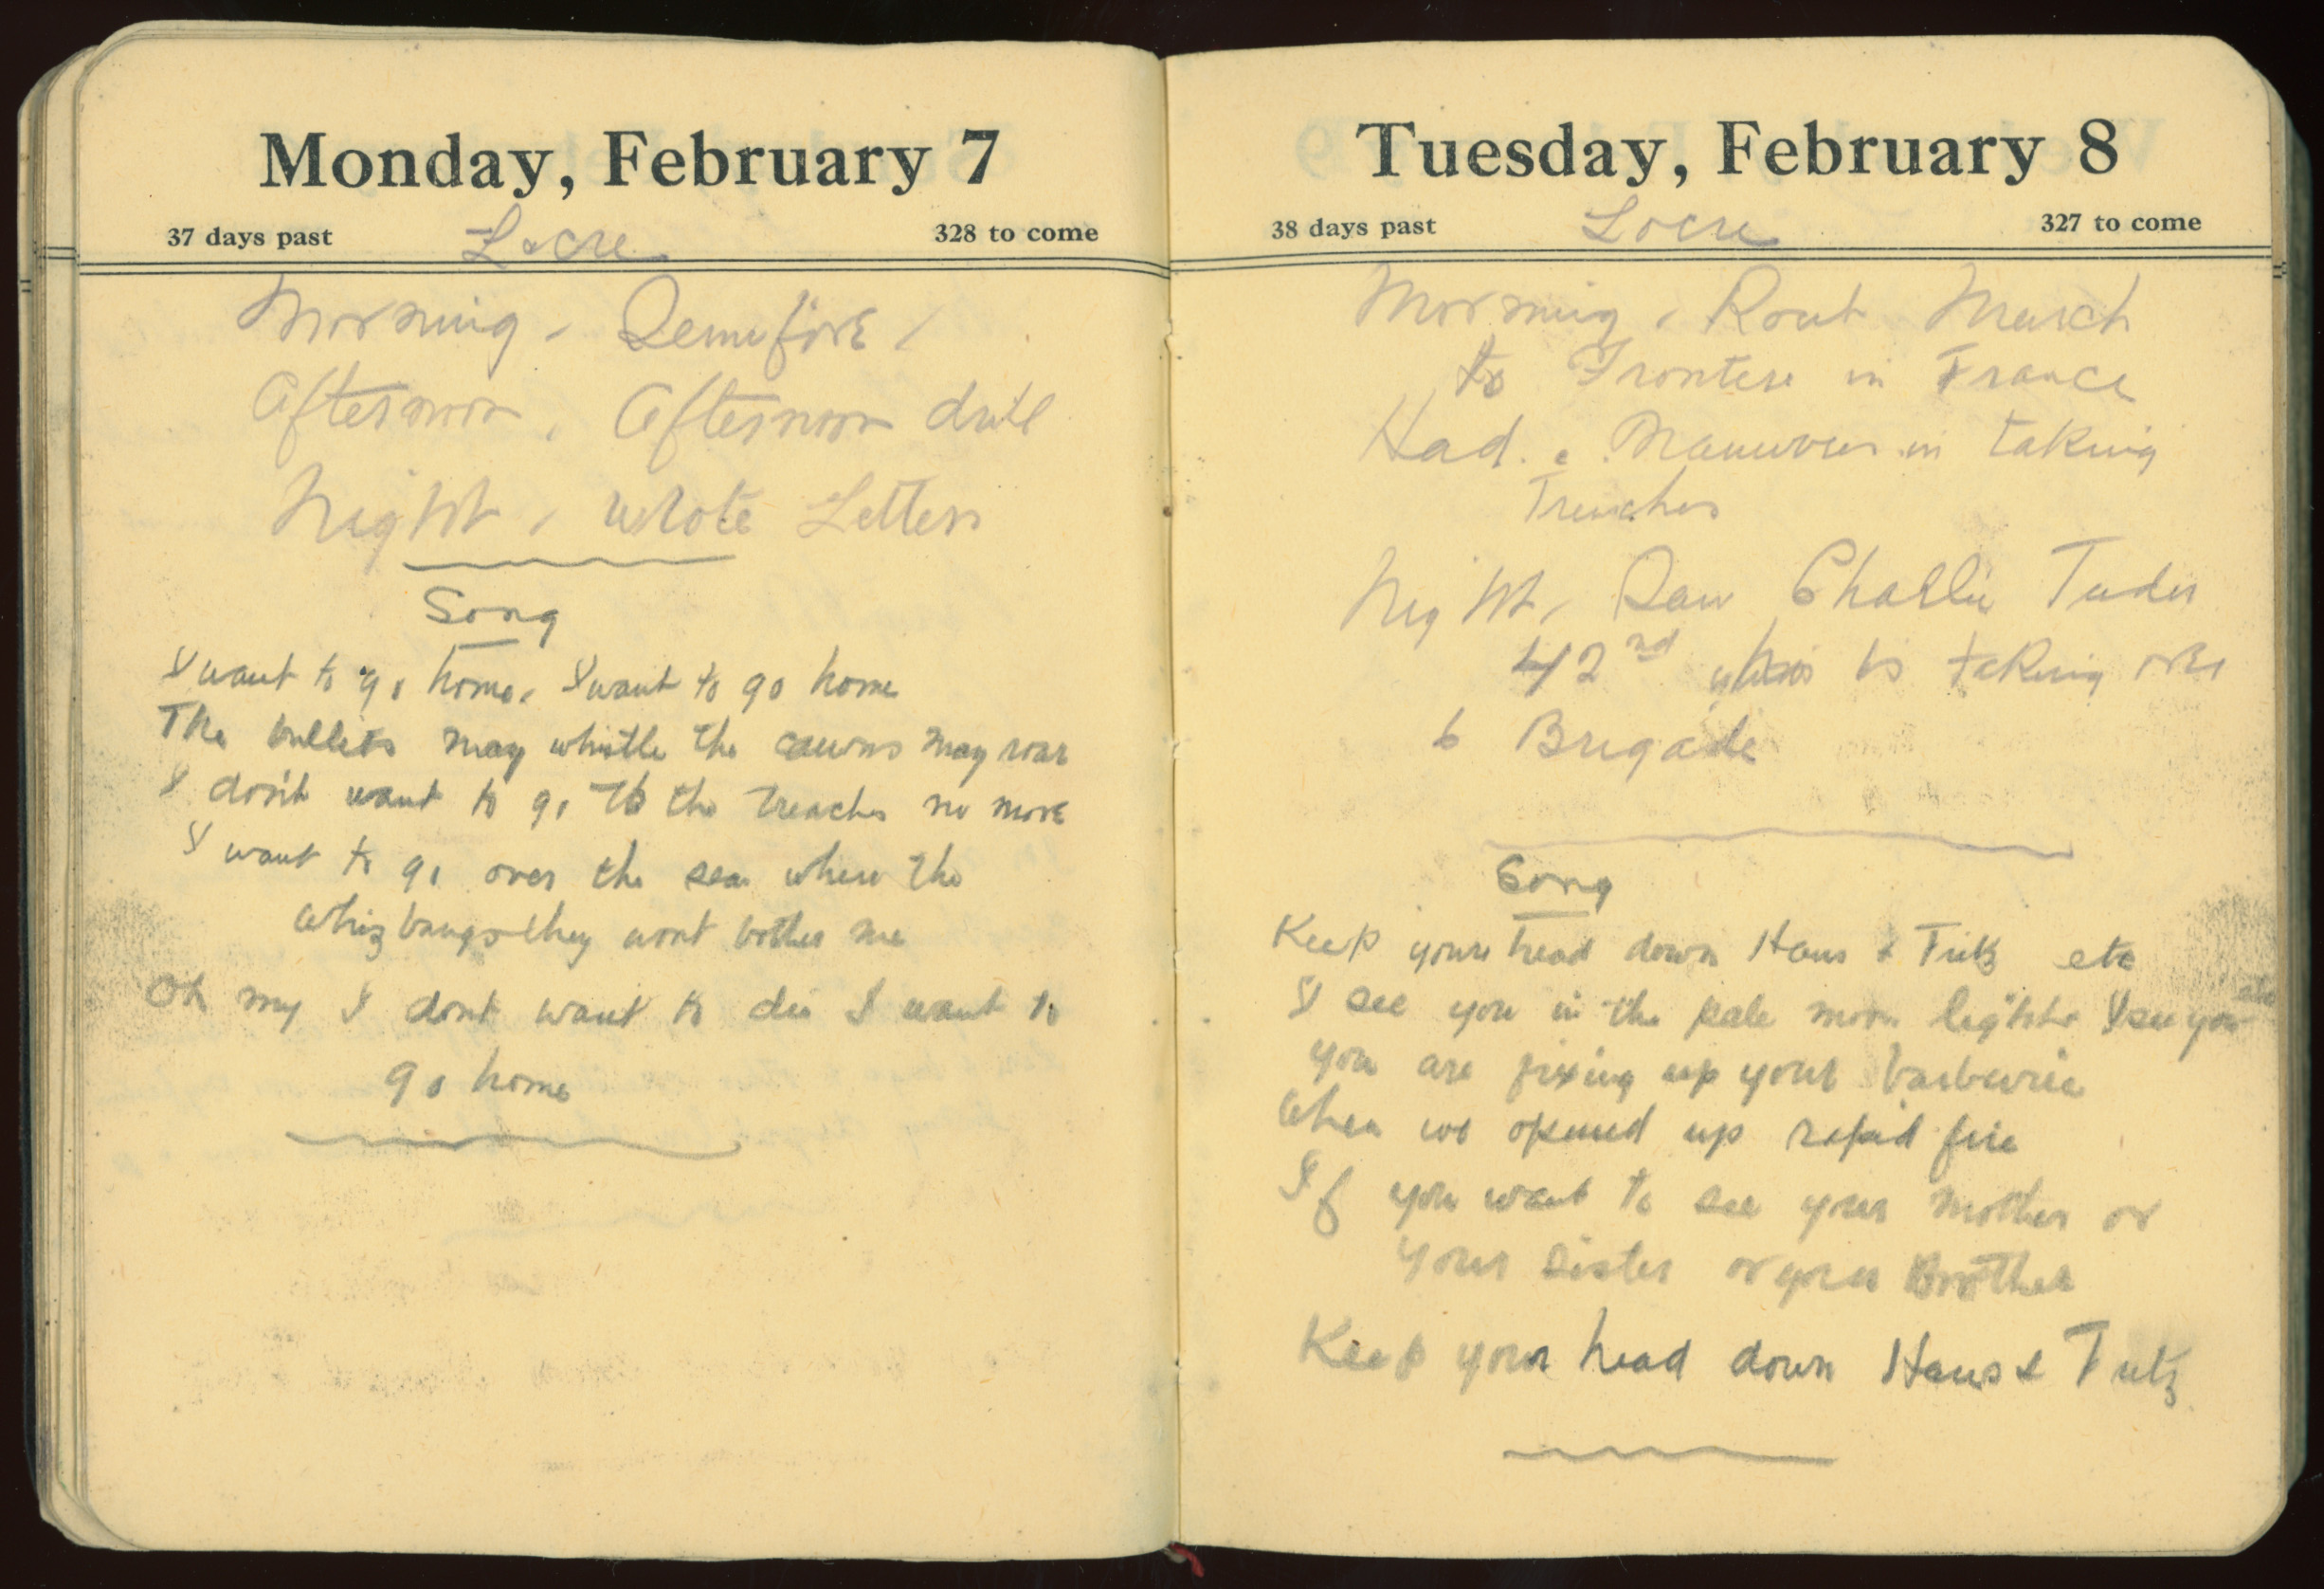 Monday, February 7
37 days past Locre 328 to come
Morning,
Afternoon, Afternoon drill
Night, wrote Letters
Song
I want to go home, I want to go home
The bullets may whistle the may roar
I don't want to go to the trenches no more
I want to go over the sea where the
Whizbangs they wont bother me
Oh my I dont want to die I want to
go home
Tuesday, February 8
38 days past Locre 327 to come
Morning, Rout March
to Frontere in France
Had a Maneuver in taking
Trenches
Night, Saw Charlie Tudor
42nd who is taking over
6 Brigade
Song
Keep your head down Hans & Fritz etc
I see you in the pale moon light I see you etc
you are fixing up your barbwire
When we opened up rapid fire
If you want to see your mother or
your sister or your Brother
Keep your head down Hans & Fritz